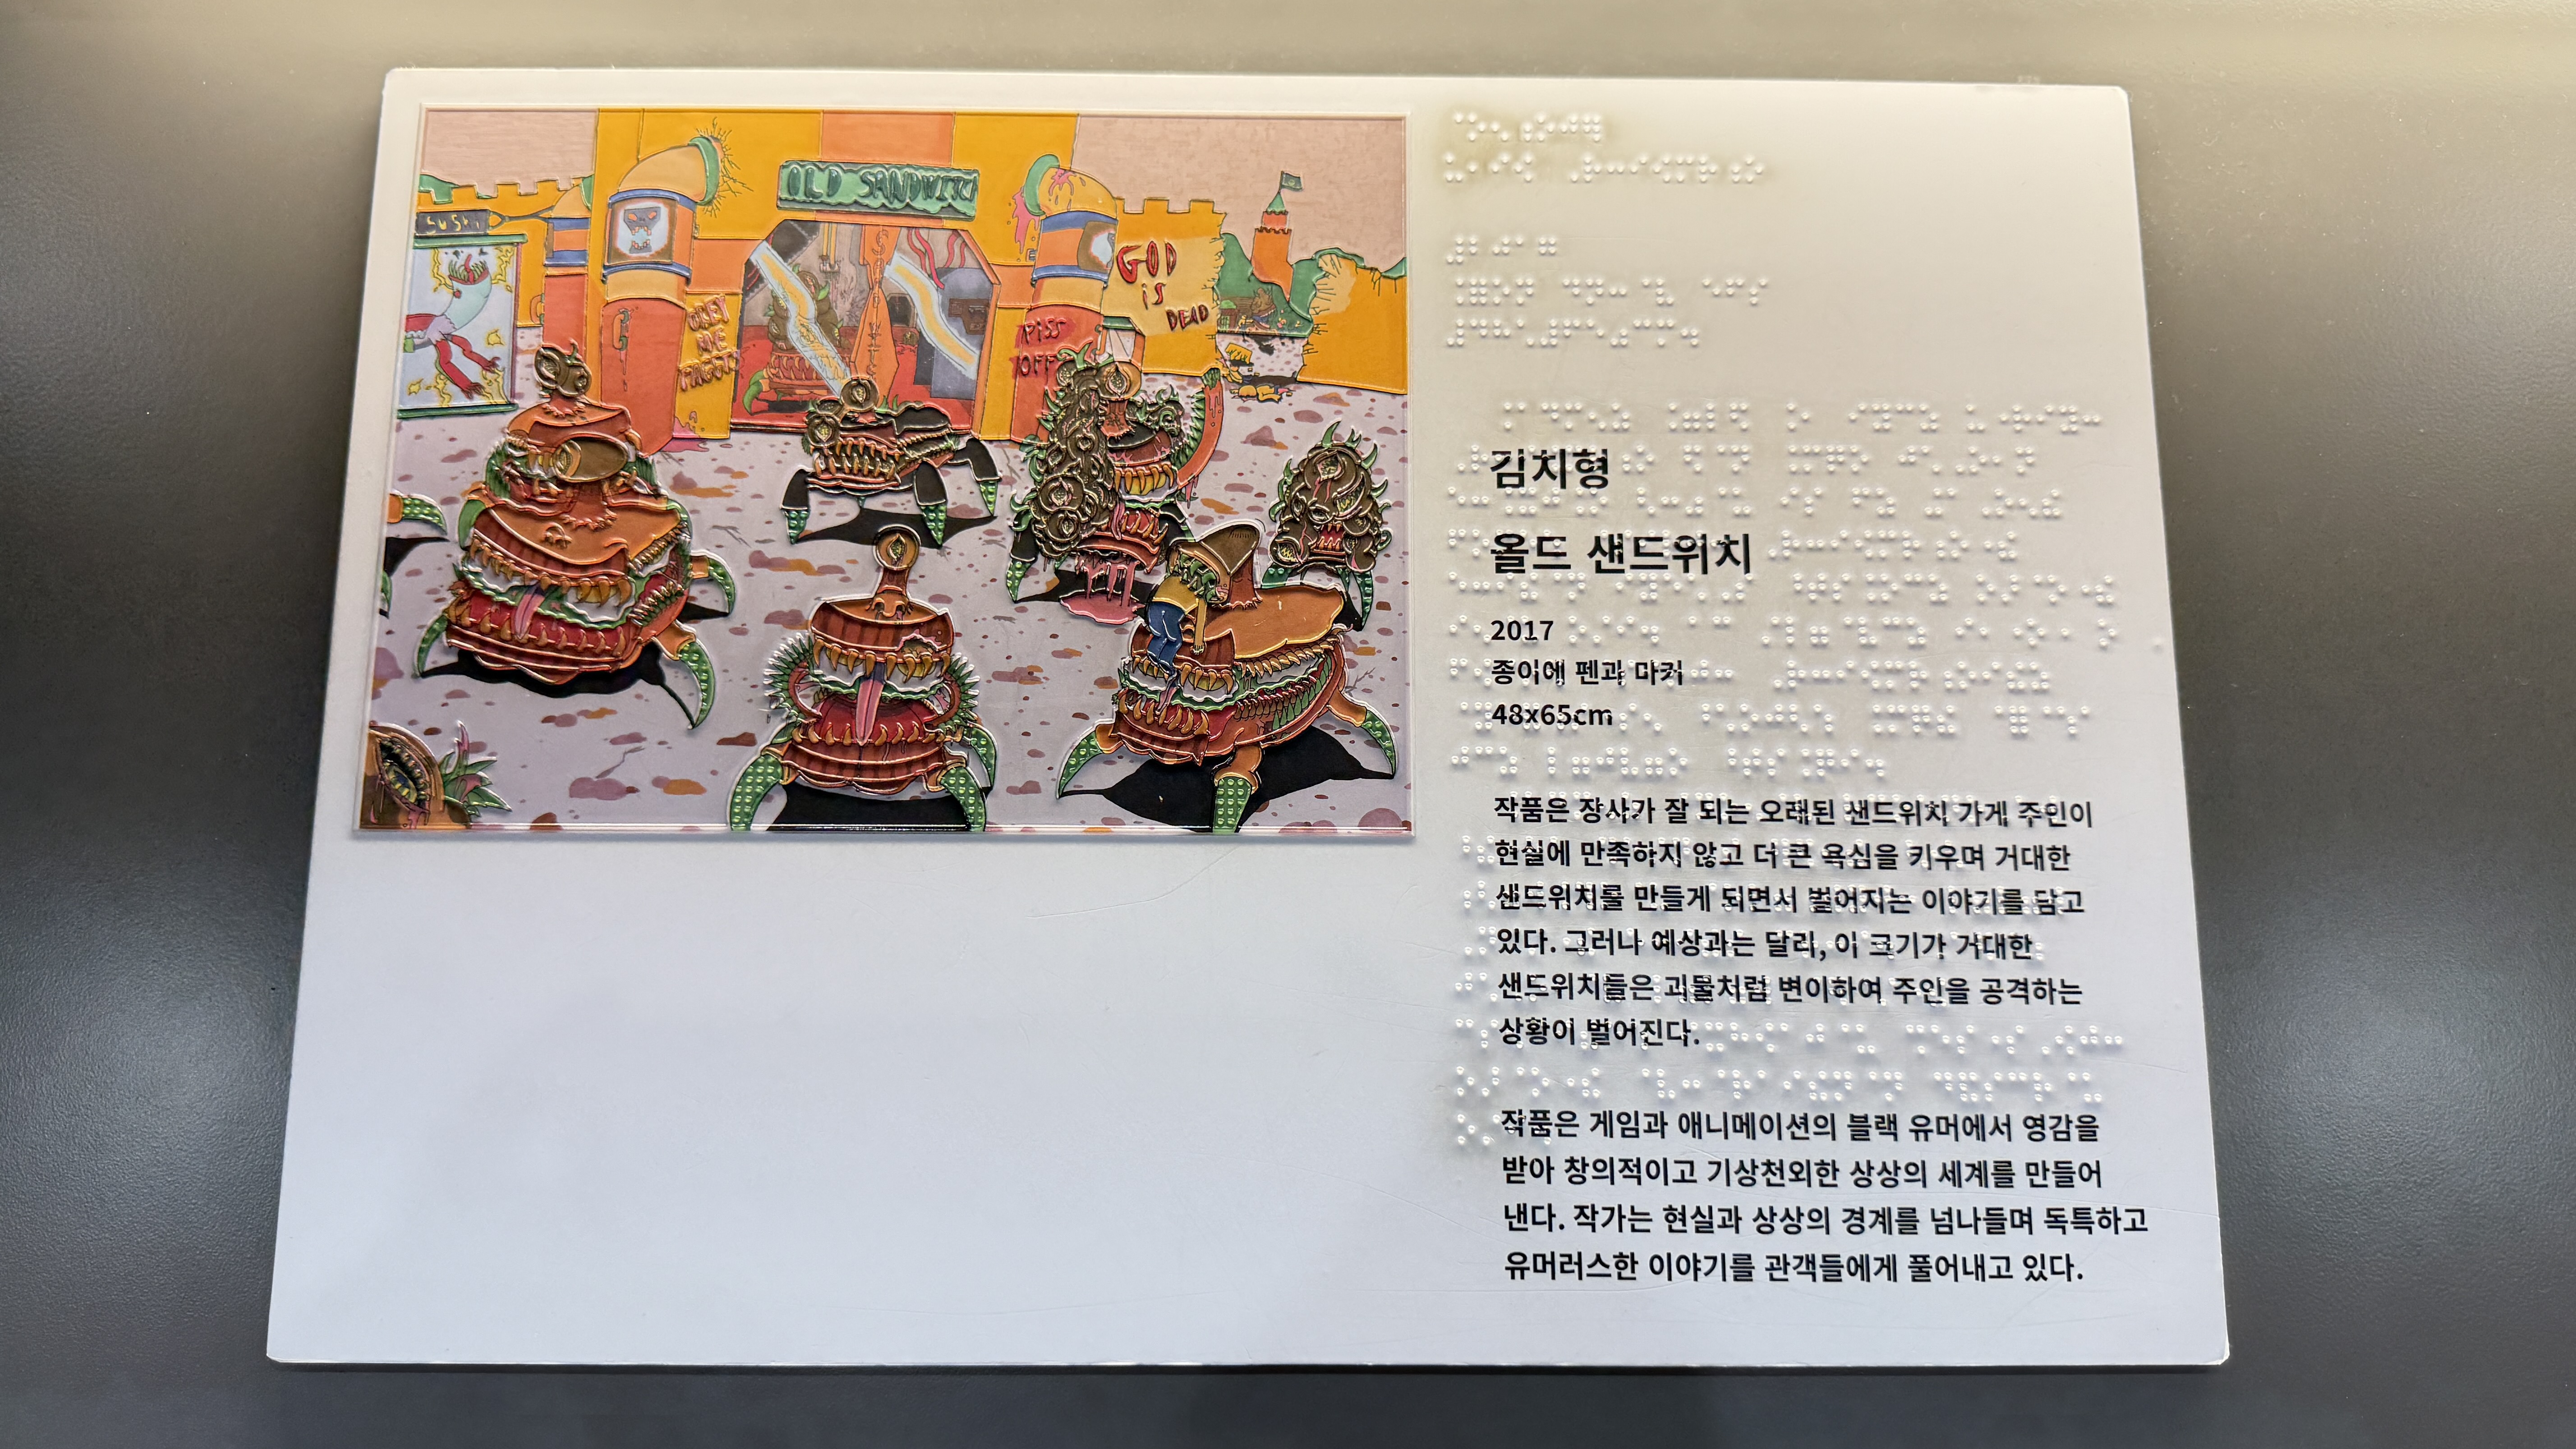 SUSHI
OLD SANDWITCH
GOD
is
DEAD
OBEY
ME
PISS
OFF
김치형
올드 샌드위치
2017
종이에 펜과 마커
48x65cm
작품은 장사가 잘 되는 오래된 샌드위치 가게 주인이
현실에 만족하지 않고 더 큰 욕심을 키우며 거대한
샌드위치를 만들게 되면서 벌어지는 이야기를 담고
있다. 그러나 예상과는 달리, 이 크기가 거대한
샌드위치들은 괴물처럼 변이하여 주인을 공격하는
상황이 벌어진다.
작품은 게임과 애니메이션의 블랙 유머에서 영감을
받아 창의적이고 기상천외한 상상의 세계를 만들어
낸다. 작가는 현실과 상상의 경계를 넘나들며 독특하고
유머러스한 이야기를 관객들에게 풀어내고 있다.